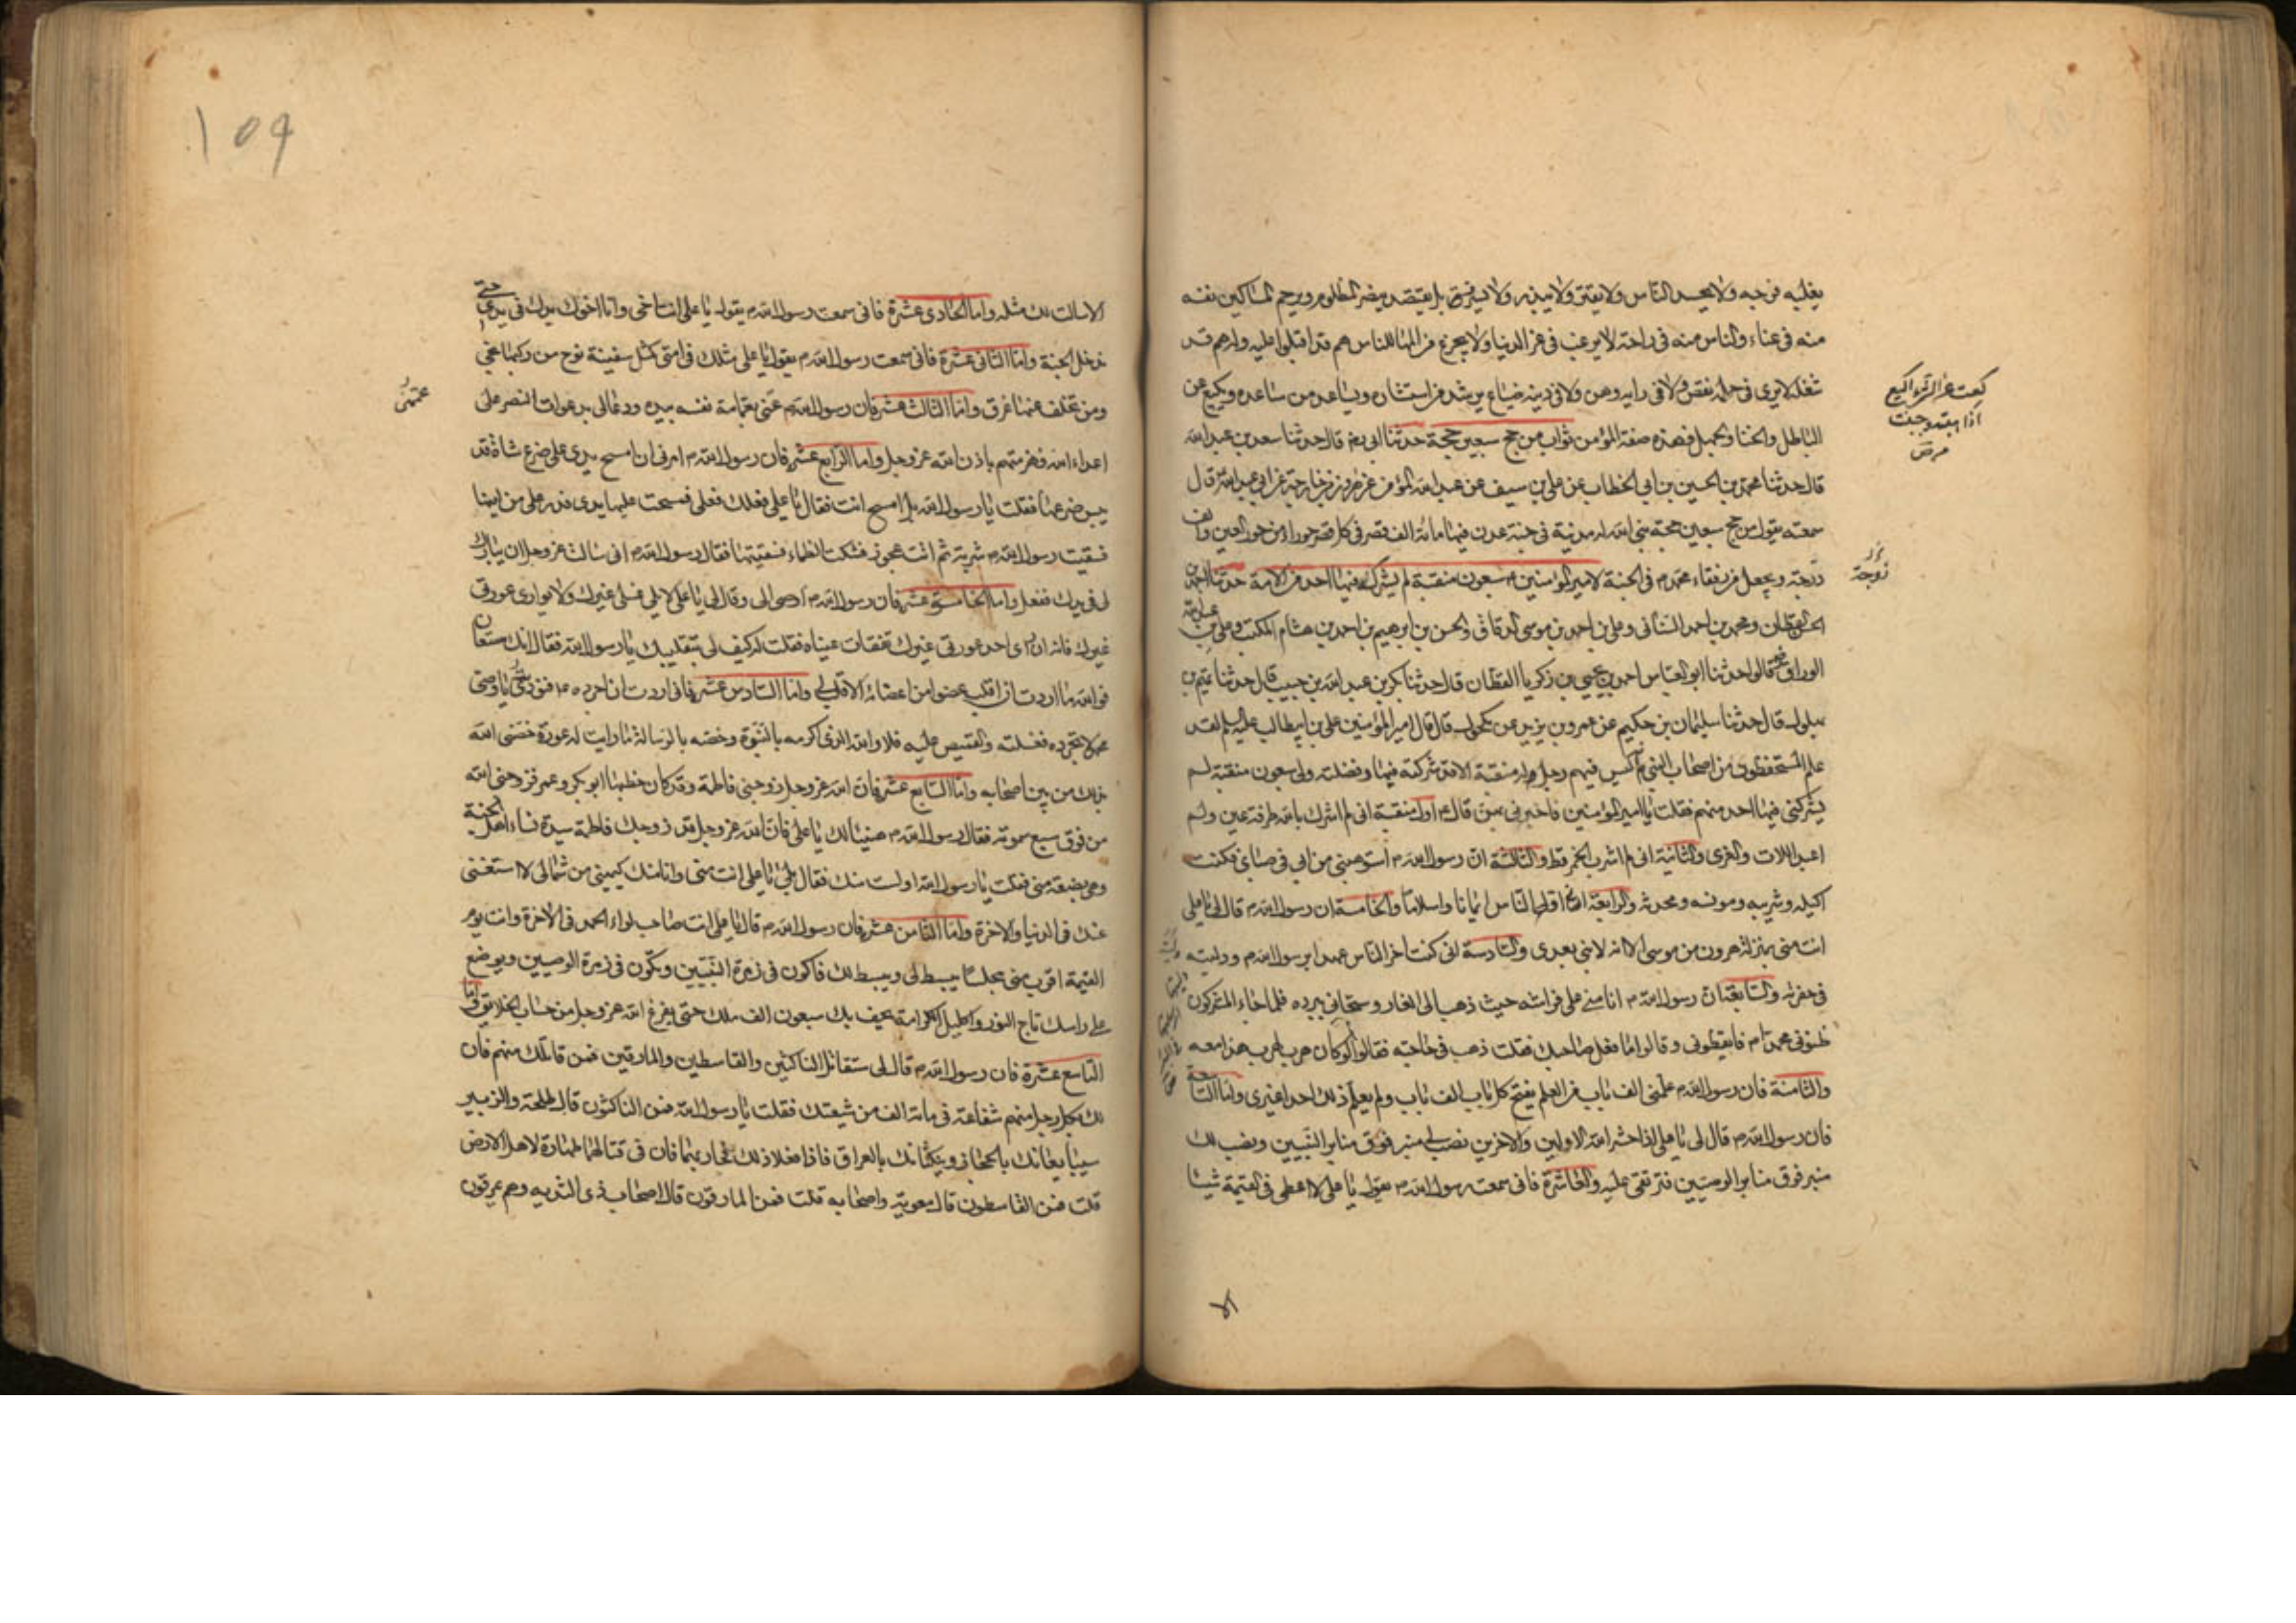 يغلبه فرجه ولا يحسد الناس ولا يقتر ولا يبذر ولا يسرف بل يقتصد ينصر المظلوم ويرحم المساكين نفسه
منه في عناء والناس منه في راحة لا يرغب في عز الدنيا ولا يجزع من المها للناس هم قد اقبلوا عليه وله هم قد
شغله لا يرى في حلمه نقص ولا في رايه وهن ولا في دينه ضياع يرشد من استشاره ويساعد من ساعده ويكيع عن
الباطل والخنا والجهل فهذه صفة المؤمن ثواب من حج سبعين حجة حدثنا ابي رحمه قال حدثنا سعد بن عبد الله
قال حدثنا محمد بن الحسين بن ابي الخطاب عن علي بن سيف عن عبد الله المؤمن عن هرون بن خارجة عن ابي عبد الله ع قال
سمعته يقول من حج سبعين حجة بنى الله له مدينة في جنة عدن فيها مائة الف قصر في كل قصر حوراء من حور العين والف
زوجة ويجعل من رفقاء محمد م في الجنة لامير المؤمنين م سبعون منقبة لم يشركه فيها احد من الامة حدثنا احمد بن
الحسن القطان ومحمد بن احمد السناني وعلي بن احمد بن موسى الدقاق والحسن بن ابرهيم بن احمد بن هشام المكتب وعلي بن عبد الله
الوراق رضه قالوا حدثنا ابو العباس احمد بن يحيى بن زكريا القطان قال حدثنا بكر بن عبد الله بن حبيب قال حدثنا تميم بن
بهلول قال حدثنا سليمان بن حكيم عن عمرو بن يزيد عن مكحول قال قال امير المؤمنين علي بن ابيطالب عليه السلم لقد
علم المستحفظون من اصحاب النبي م انه ليس فيهم رجل وله منقبة الا قد شركته فيها وفضلته ولي سبعون منقبة لم
يشركني فيها احد منهم فقلت يا امير المؤمنين فاخبرني بهن قال ع اول منقبة اني لم اشرك بالله طرفة عين ولم
اعبد اللات والعزى والثانية اني لم اشرب الخمر قط والثالثة ان رسول الله م استوهبني من ابي في صباي فكنت
اكيله وشريبه ومونسه ومحدثه والرابعة اني اول الناس ايمانا واسلاما والخامسة ان رسول الله م قال لي يا علي
انت مني بمنزلة هرون من موسى الا انه لا نبي بعدي والسادسة اني كنت اخر الناس عهدا برسول الله م ودليته
في حفرته والسابعة ان رسول الله م انامني على فراشه حيث ذهب الى الغار وسجاني ببرده فلما جاء المشركون
ظنوني محمدا م فايقظوني وقالوا ما فعل صاحبك فقلت ذهب في حاجته فقالوا لو كان هرب لهرب هذا معه
والثامنة فان رسول الله م علمني الف باب من العلم يفتح كل باب الف باب ولم يعلم ذلك احدا غيري واما التاسعة
فان رسول الله م قال لي يا علي اذا حشر الله الاولين والاخرين نصب لي منبر فوق منابر النبيين ونصب لك
منبر فوق منابر الوصيين فترتقي عليه والعاشرة فاني سمعت رسول الله م يقول يا علي لا اعطى في القيمة شيئا
الا
زوجة
١٥٩
الا سالت لك مثله واما الحادي عشرة فاني سمعت رسول الله م يقول يا علي انت اخي وانا اخوك يدك في يدي حتى
ندخل الجنة واما الثاني عشرة فاني سمعت رسول الله م يقول يا علي مثلك في امتي كمثل سفينة نوح من ركبها نجى
ومن تخلف عنها غرق واما الثالث عشر فان رسول الله م عمني بعمامة نفسه بيده ودعا لي بدعوات النصر على
اعداء الله فهزمتهم باذن الله عز وجل واما الرابع عشر فان رسول الله م امرني ان امسح يدي على ضرع شاة قد
يبس ضرعها فقلت يا رسول الله بل امسح انت فقال يا علي فعلك فعلي فمسحت عليها يدي فدر علي من لبنها
فسقيت رسول الله م شربة ثم اتت عجوز فشكت الظماء فسقيتها فقال رسول الله م اني سالت عز وجل ان يبارك
لي في يدك ففعل واما الخامسة عشر فان رسول الله م اوصى الي وقال لي يا علي لا يلي غسلي غيرك ولا يواري عورتي
غيرك فانه ان راى احد عورتي غيرك تفقات عيناه فقلت له كيف لي بتقليبك يا رسول الله فقال انك ستعان
فوالله ما اردت ان اقلب عضوا من اعضائه الا قلب لي واما السادس عشر فاني اردت ان اجرده م فنوديت يا وصي
محمد لا تجرده فغسلته والقميص عليه فلا والله الذي اكرمه بالنبوة وخصه بالرسالة ما رايت له عورة خصني الله
بذلك من بين اصحابه واما السابع عشر فان الله عز وجل زوجني فاطمة وقد كان خطبها ابو بكر وعمر فزوجني الله
من فوق سبع سموته فقال رسول الله م هنيئا لك يا علي فان الله عز وجل قد زوجك فاطمة سيدة نساء اهل الجنة
وهي بضعة مني فقلت يا رسول الله اولست منك فقال بلى يا علي انت مني وانا منك كيميني من شمالي لا استغني
عنك في الدنيا والاخرة واما الثامن عشر فان رسول الله م قال يا علي انت صاحب لواء الحمد في الاخرة وانت يوم
القيمة اقرب مني مجلسا يبسط لي ويبسط لك فاكون في زمرة النبيين وتكون في زمرة الوصيين ويوضع
على راسك تاج النور واكليل الكرامة يحف بك سبعون الف ملك حتى يفرغ الله عز وجل من حساب الخلايق واما
التاسع عشرة فان رسول الله م قال لي ستقاتل الناكثين والقاسطين والمارقين فمن قاتلك منهم فان
لك بكل رجل منهم شفاعة في مائة الف من شيعتك فقلت يا رسول الله فمن الناكثون قال طلحة والزبير
سيبايعانك بالحجاز وينكثانك بالعراق فاذا فعلا ذلك فحاربهما فان في قتالهما طهارة لاهل الارض
قلت فمن القاسطون قال معوية واصحابه قلت فمن المارقون قال اصحاب ذي الثديه وهم يمرقون
عممني